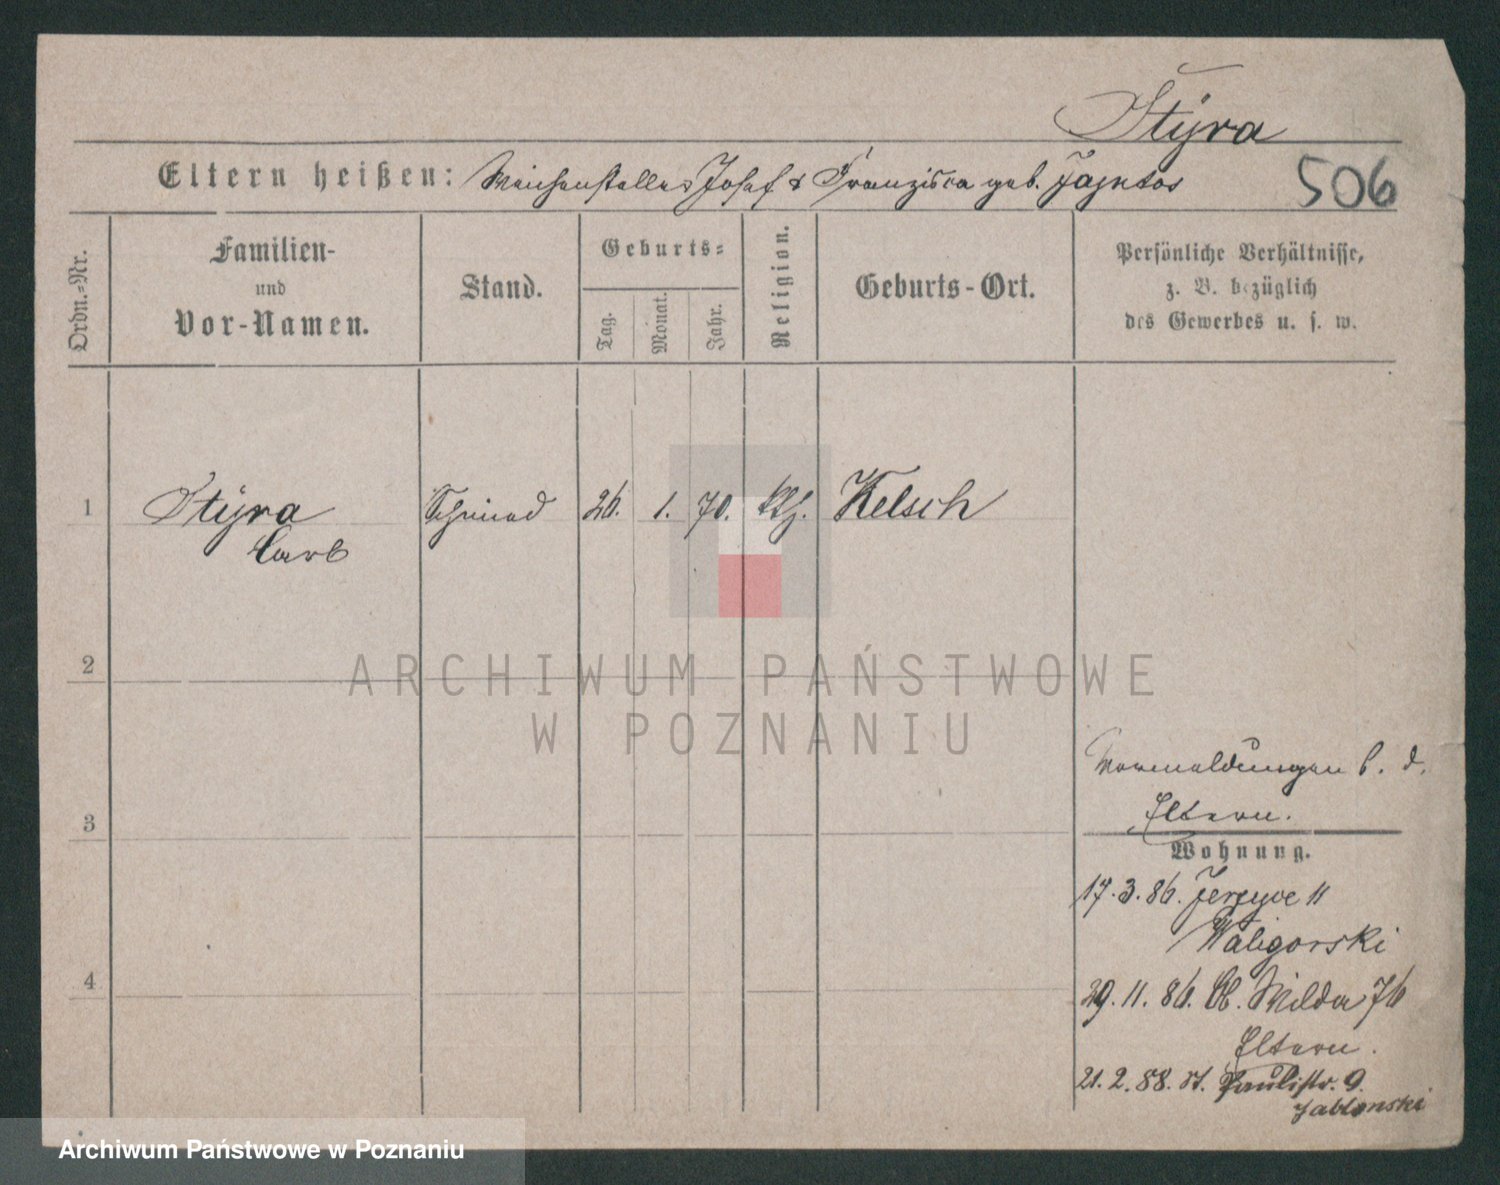 Styra
Eltern heißen: Weichensteller Josef & Franzisca geb. Jajntos
506
Ordn.-Nr.
Familien-
und
Vor-Namen.
Stand.
Geburts-
Tag.
Monat.
Jahr.
Religion.
Geburts-Ort.
Persönliche Verhältnisse,
z. B. bezüglich
des Gewerbes u. s. w.
1
Styra
Carl
Schmied
26.
1.
70.
kth.
Kelsch
2
3
4
ARCHIWUM PAŃSTWOWE
W POZNANIU
Vormeldungen b. d.
Eltern.
Wohnung.
17.3.86. Jerzyce 11
Waligorski
29.11.86. Ob. Wilda 76
Eltern.
21.2.88. St. Paulistr. 9.
Jablonski
Archiwum Państwowe w Poznaniu